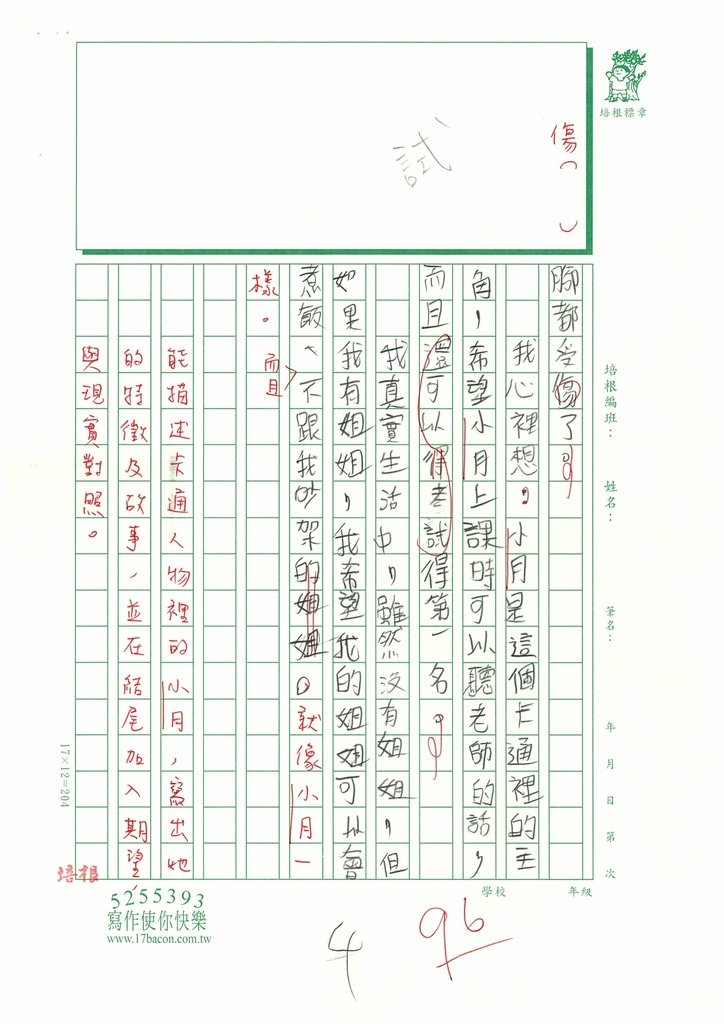 培根標章
傷（ ）
試
培根編班：
姓名：
筆名：
年 月 日 第 次
年級
學校
腳都受傷了。
我心裡想，小月是這個卡通裡的主
角，希望小月上課時可以聽老師的話，
而且還可以得考試得第一名。
我真實生活中，雖然沒有姐姐，但
如果我有姐姐，我希望我的姐姐可以會
煮飯、不跟我吵架的姐姐。就像小月一
而且
樣。
能描述卡通人物裡的小月，寫出她
的特徵及故事，並在結尾加入期望，
與現實對照。
17×12=204
培根
5255393
寫作使你快樂
www.17bacon.com.tw
4
96